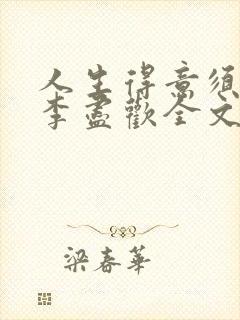 人生得意須
李盡歡全文
梁春華